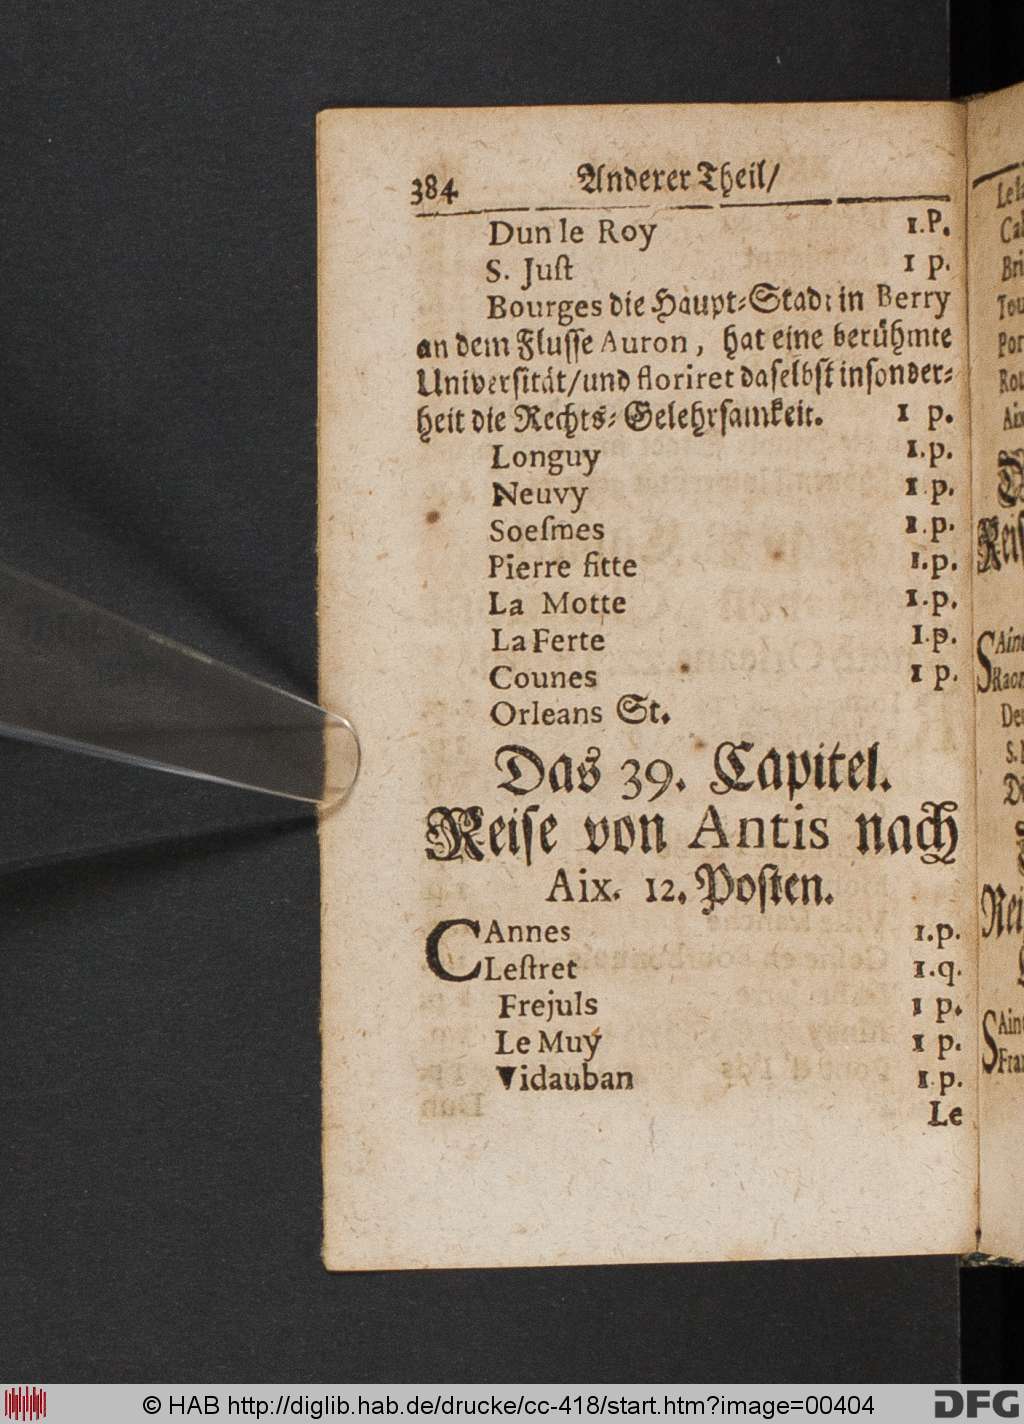 384 Anderer Theil/
Dun le Roy 1.P.
S. Juſt 1 p.
Bourges die Haupt-Stadt in Berry
an dem Fluſſe Auron, hat eine berühmte
Univerſität/und floriret daſelbſt inſonder-
heit die Rechts-Gelehrſamkeit. 1 p.
Longuy 1.p.
Neuvy 1.p.
Soeſmes 1.p.
Pierre fitte 1.p.
La Motte 1.p.
La Ferte 1.p.
Counes 1 p.
Orleans St.
Das 39. Capitel.
Reiſe von Antis nach
Aix. 12. Poſten.
CAnnes 1.p.
Leſtret 1.q.
Frejuls 1 p.
Le Muy 1 p.
Vidauban 1.p.
Le
© HAB http://diglib.hab.de/drucke/cc-418/start.htm?image=00404
DFG